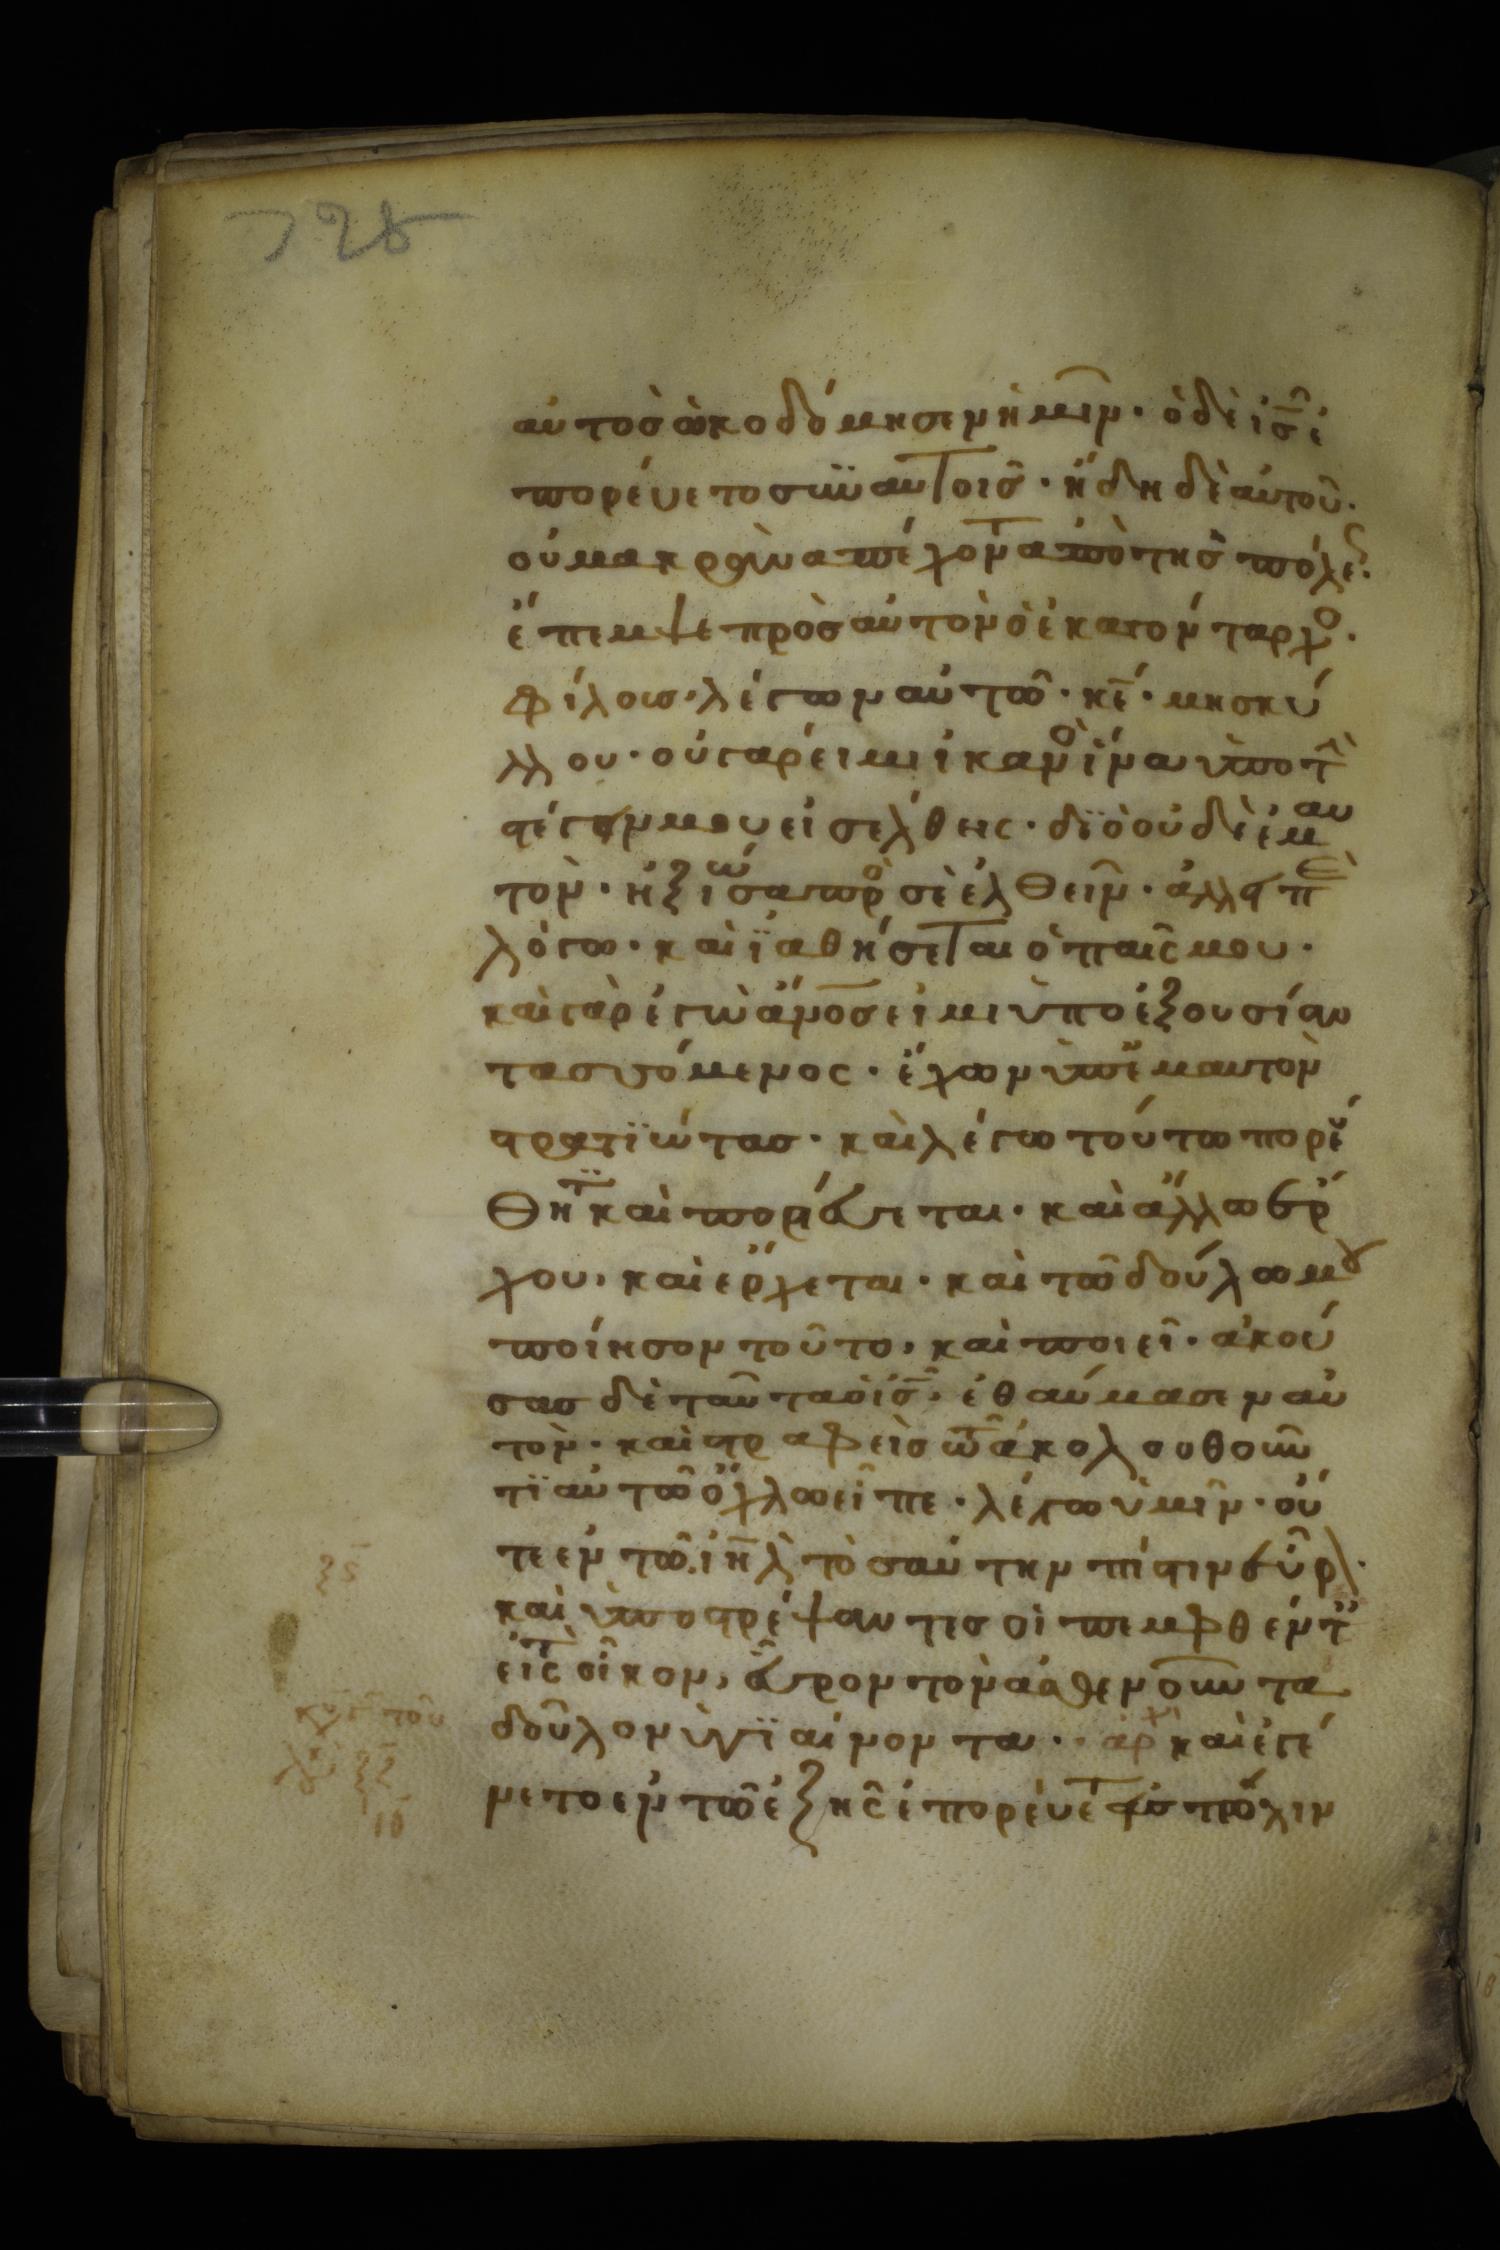 αὐτὸσ ὠκοδόμησεν ἡμῖν· ὁ δὲ ἰσ̅ ἐ
πορεύετο σὺν αὐτοῖσ· ἤδη δὲ αὐτοῦ·
οὐ μακρὰν ἀπέχοντ ἀπὸ τῆσ πόλε·
ἔπεμψε πρὸσ αὐτὸν ὁ ἑκατόνταρχο·
φίλουσ, λέγων αὐτῶ· κε̅· μὴ σκύ
λλου· οὐ γάρ εἰμι ἱκανὸ ἵνα ὑπὸ τ
στέγην μου εἰσέλθης· διὸ οὐδὲ ἐμαυ
τὸν· ἠξίωσα πρὸ σὲ ἐλθεῖν· ἀλλὰ πὲ
λόγω· καὶ ἰαθήσεται ὁ παῖς μου·
καὶ γὰρ ἐγὼ ἄνοσ εἰμι ὑπὸ ἐξουσίαν
τασσόμενος· ἔχων ὑπ' ἐμαυτὸν
στρατιώτασ· καὶ λέγω τούτω πορεύ
θητι καὶ πορεύεται· καὶ ἄλλω ἔρ
χου, καὶ ἔρχεται· καὶ τῶ δούλω μου
ποίησον τοῦτο, καὶ ποιεῖ· ἀκού
σασ δὲ ταῦτα ὁ ἰσ̅· ἐθαύμασεν αὐ
τὸν· καὶ στραφεὶσ τῶ ἀκολουθοῦν
τι αὐτῶ ὄχλω εἶπε· λέγω ὑμῖν· οὔ
τε ἐν τῶ ἰηλ̅ τοσαύτην πίστιν εὗρ·
καὶ ὑποστρέψαντεσ οἱ πεμφθέντ
εἰς τὸ οἶκον, εὗρον τὸν ἀσθενοῦντα
δοῦλον ὑγιαίνοντα·· ἀρχ καὶ ἐγέ
νετο ἐν τῶ ἑξῆς ἐπορεύετ εἰσ πόλιν
ξς